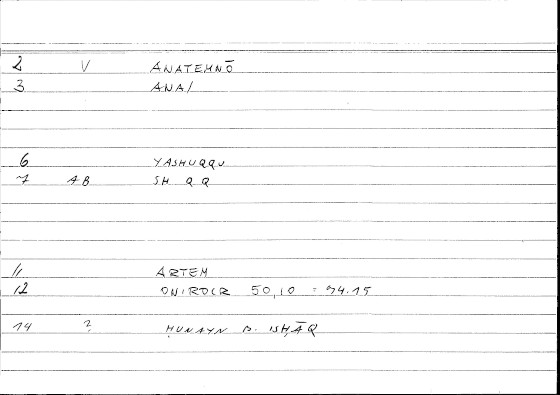 2 V ANATEMNŌ
3 ANA/
6 YASHUQQU
7 AB SH QQ
11 ARTEM
12 ONIROCR 50,10 = 94.15
14 ? ḤUNAYN B. ISḤĀQ